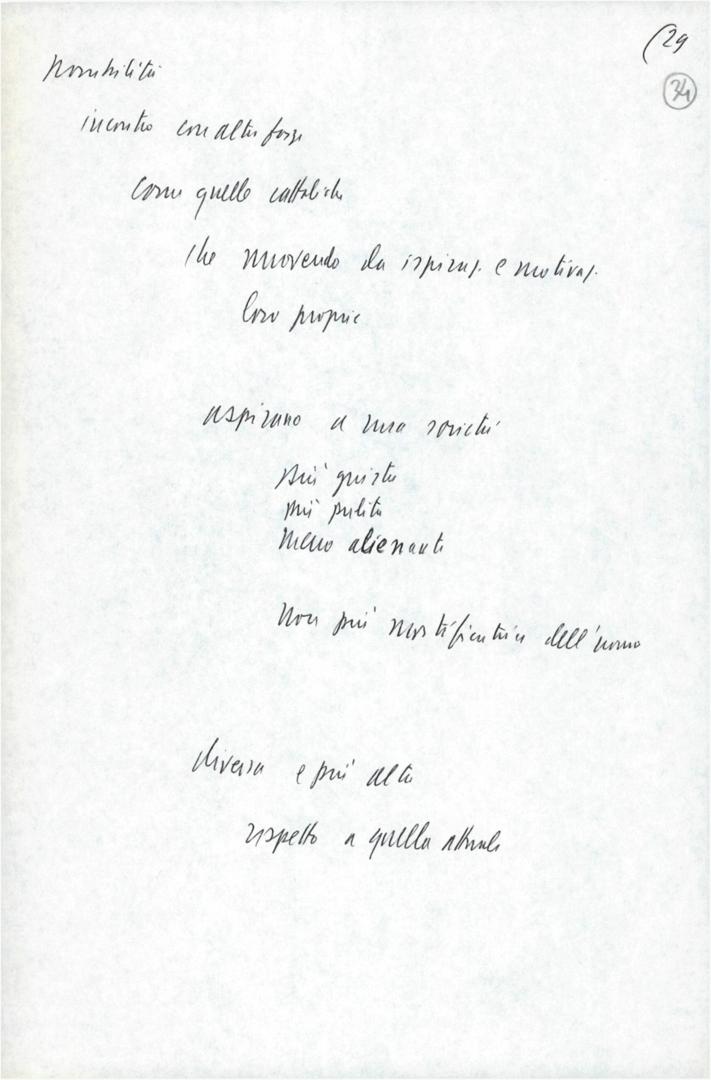 (29
34
possibilità
incontro con altre forze
come quelle cattoliche
che muovendo da ispiraz. e motivaz.
loro proprie
aspirano a una società
più giusta
più pulita
meno alienante
non più mortificatrice dell'uomo
diversa e più alta
rispetto a quella attuale